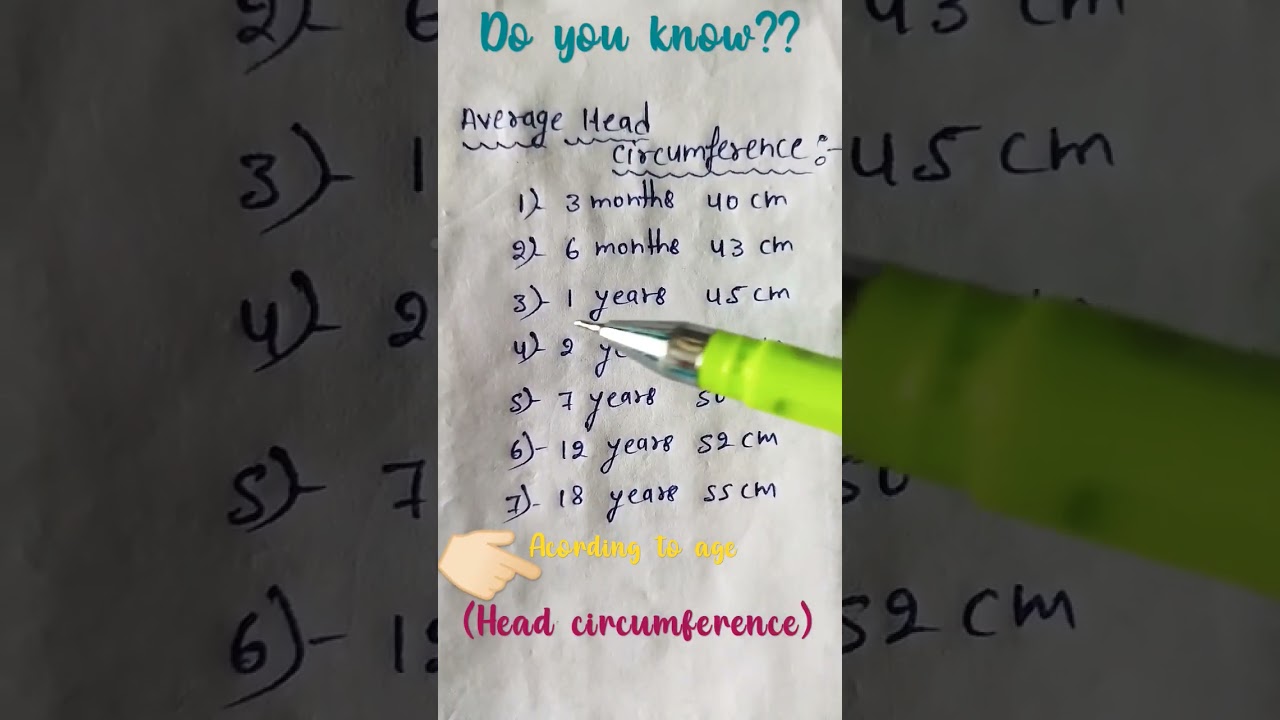 Do you know??
Average Head
circumference :-
1)- 3 months 40 cm
2)- 6 months 43 cm
3)- 1 years 45 cm
4)- 2
5)- 7 years 50
6)- 12 years 52 cm
7)- 18 years 55 cm
Acording to age
(Head circumference)